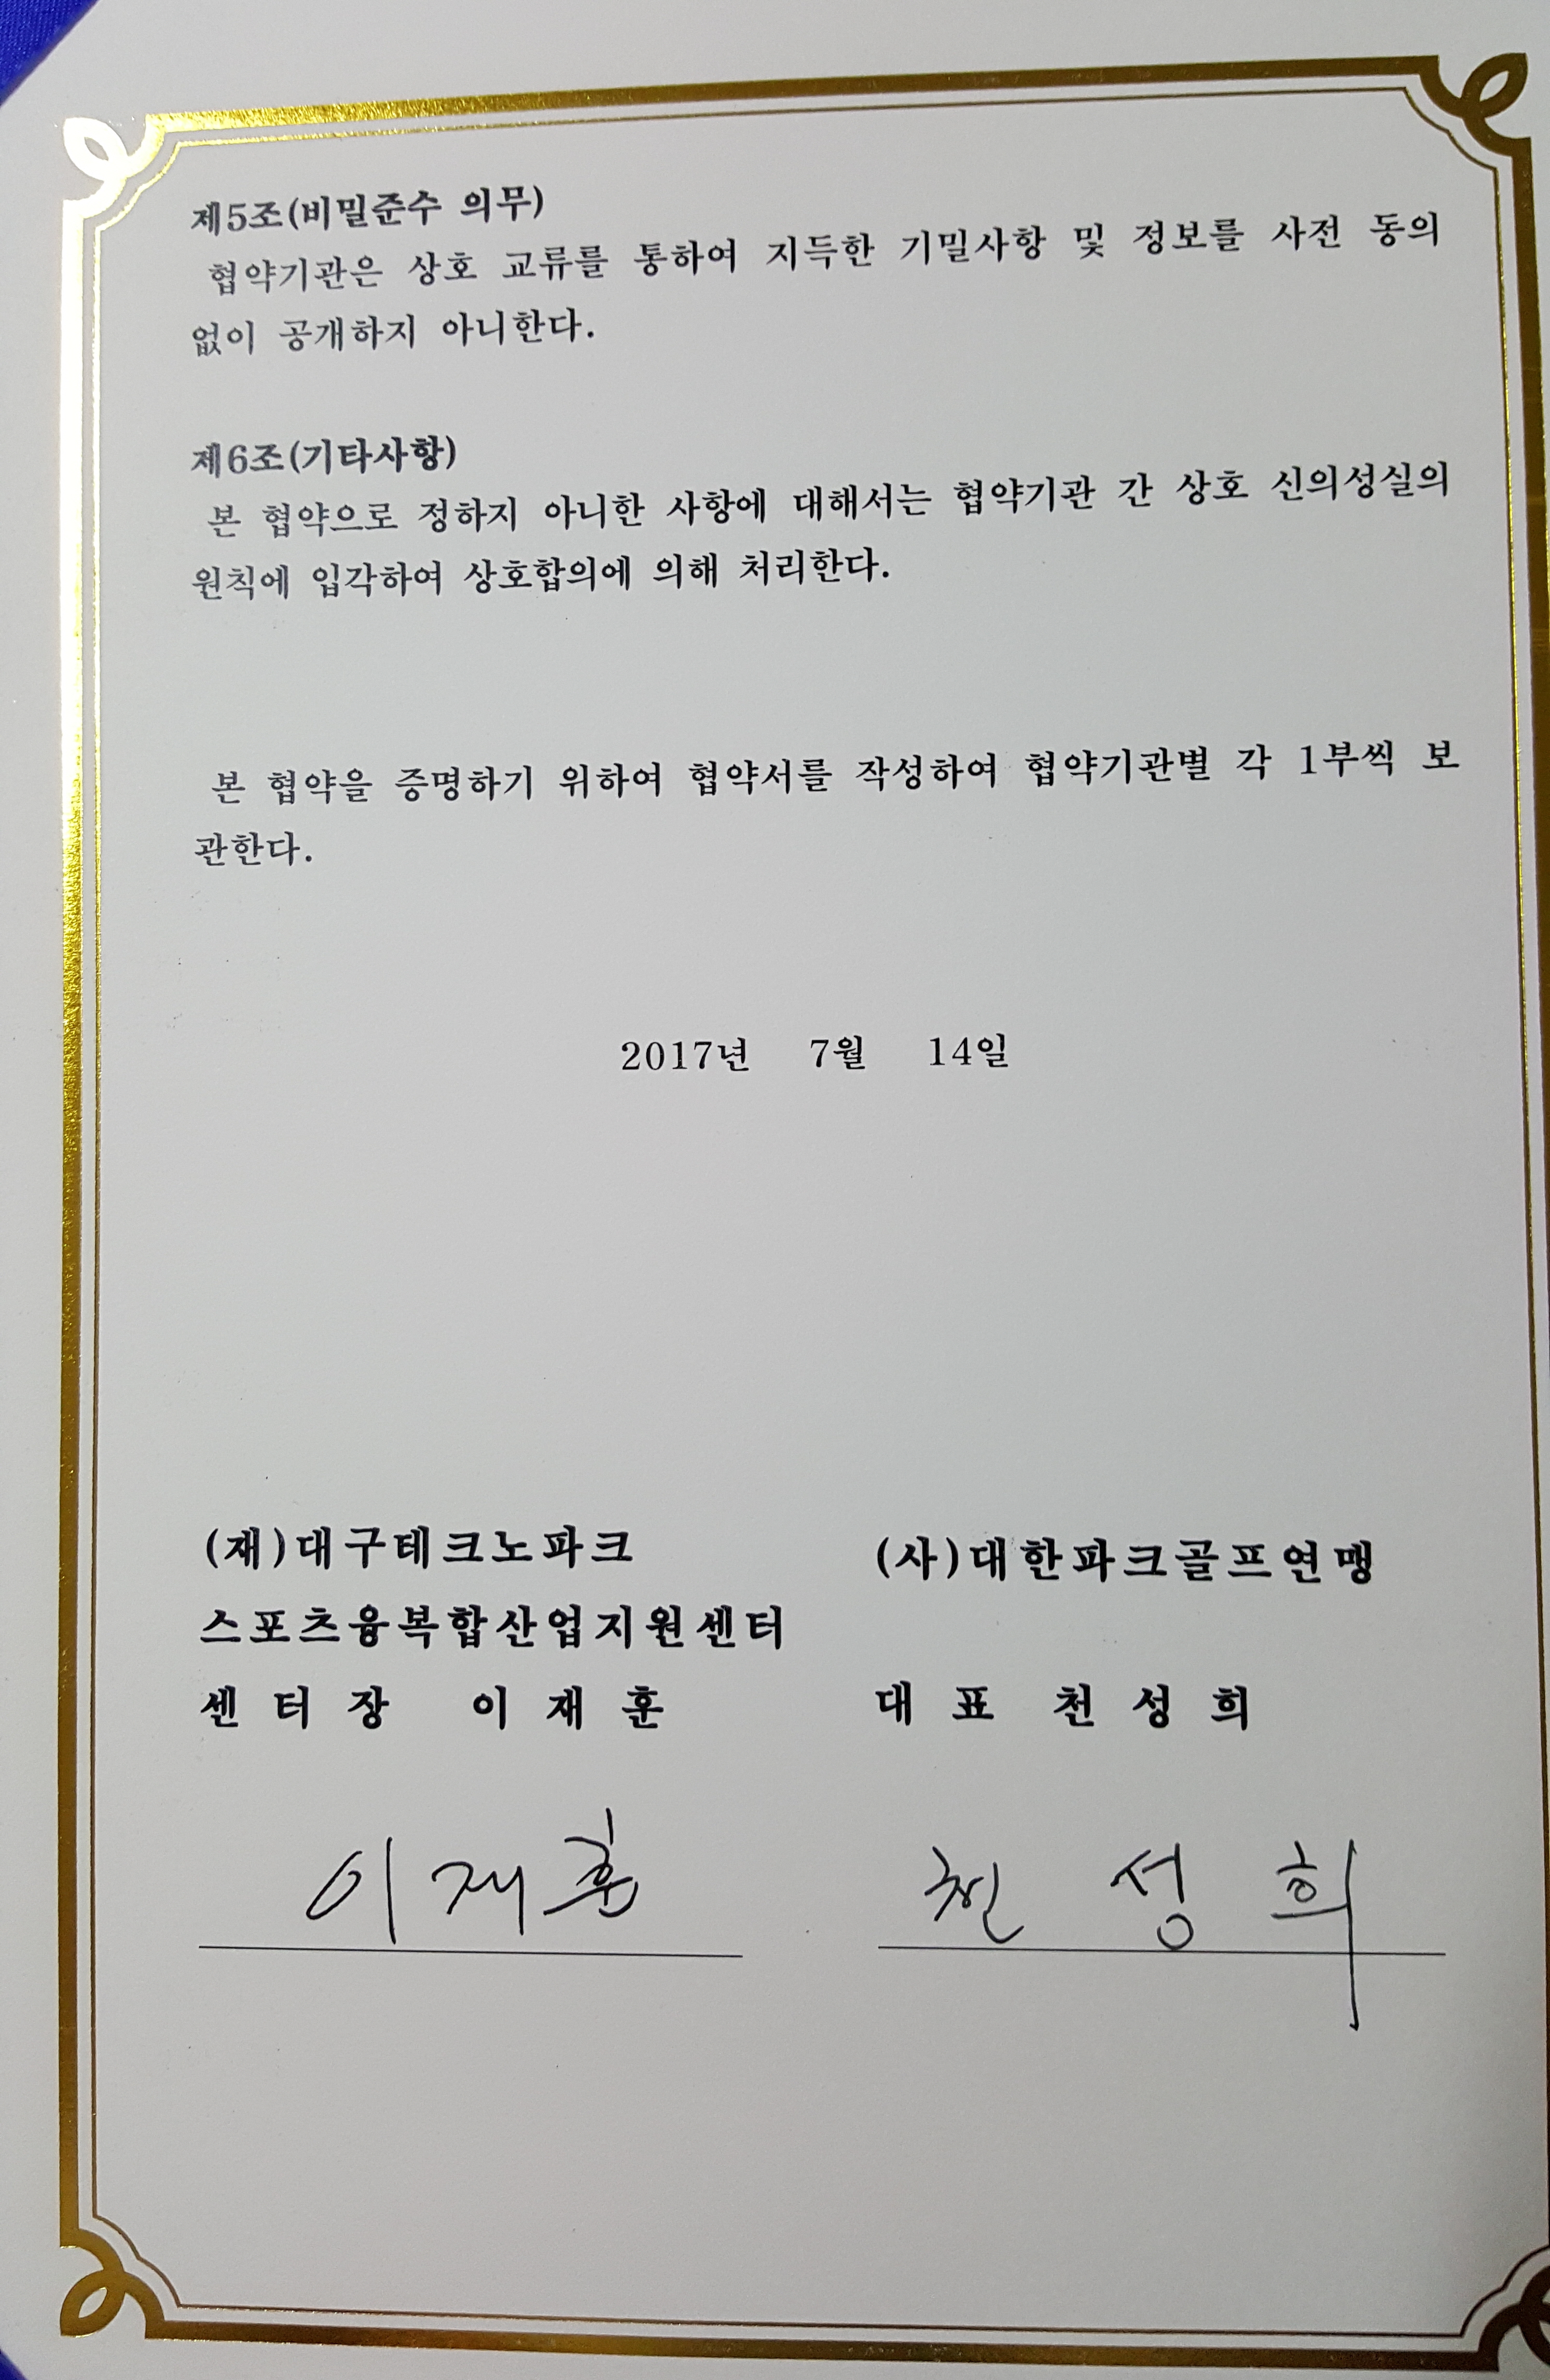 제5조(비밀준수 의무)
협약기관은 상호 교류를 통하여 지득한 기밀사항 및 정보를 사전 동의
없이 공개하지 아니한다.
제6조(기타사항)
본 협약으로 정하지 아니한 사항에 대해서는 협약기관 간 상호 신의성실의
원칙에 입각하여 상호합의에 의해 처리한다.
본 협약을 증명하기 위하여 협약서를 작성하여 협약기관별 각 1부씩 보
관한다.
2017년 7월 14일
(재)대구테크노파크
스포츠융복합산업지원센터
센 터 장 이 재 훈
이재훈
(사)대한파크골프연맹
대 표 천 성 희
천 성 희